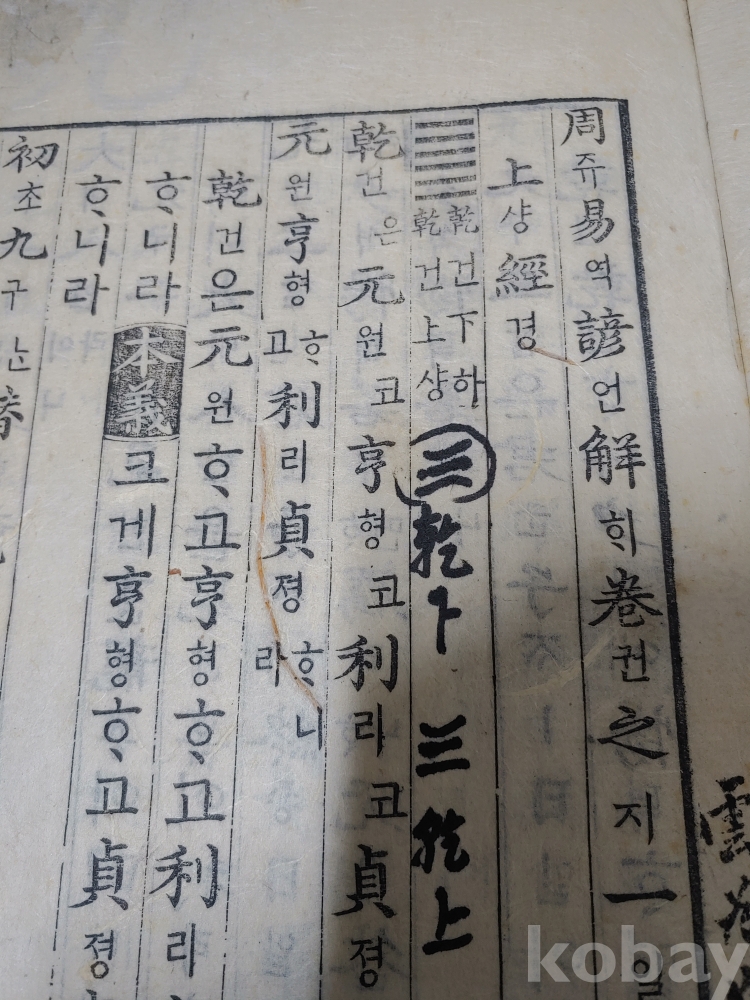 周쥬易역諺언解ᄒᆡ卷권之지一일
上샹經경
乾건下하
乾건上샹
三乾下 三乾上
乾건은元원코亨형코利리코貞졍
元원亨형ᄒᆞ고利리貞졍ᄒᆞ니라
乾건은元원ᄒᆞ고亨형ᄒᆞ고利리
ᄒᆞ니라本義크게亨형ᄒᆞ고貞졍
ᄒᆞ니라
初초九구ᄂᆞᆫ
kobay